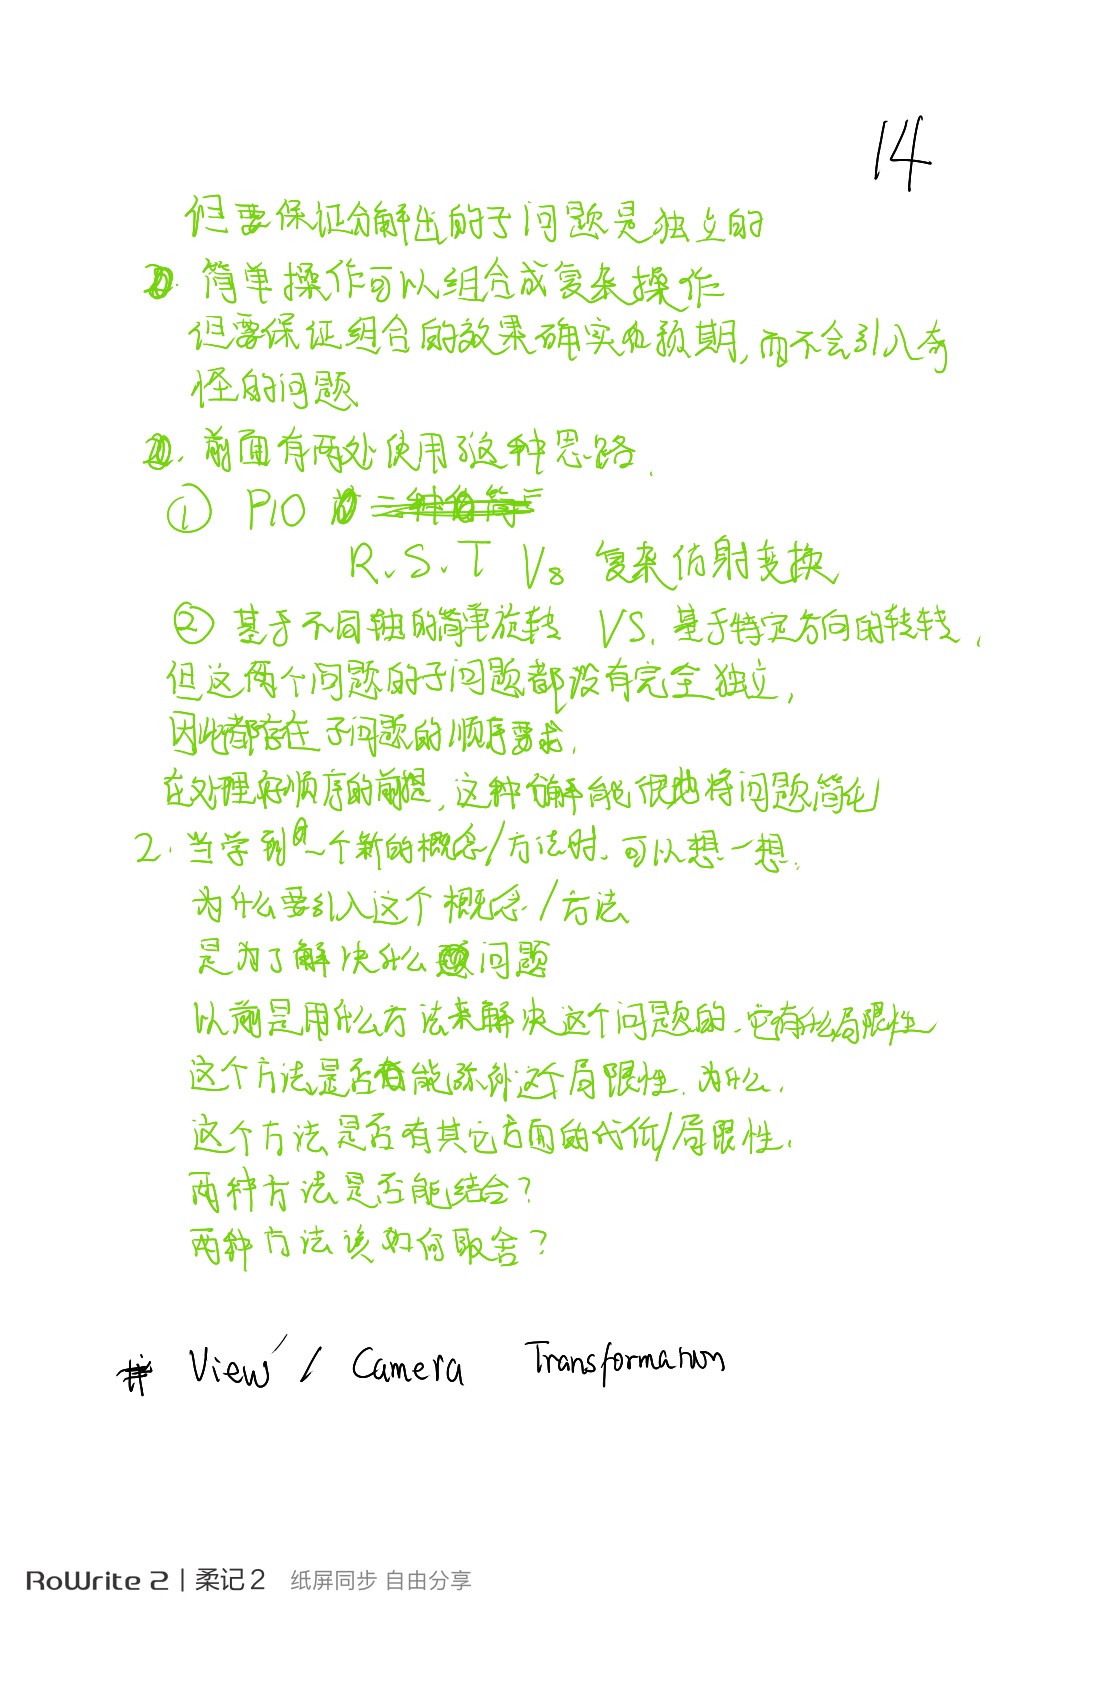 14
但要保证分解出的子问题是独立的
简单操作可以组合成复杂操作
但要保证组合的效果确实如预期,而不会引入奇
怪的问题
前面有两处使用了这种思路.
① P10
R.S.T Vs 复杂仿射变换
② 基于不同轴的简单旋转 VS. 基于特定方向的转转,
但这两个问题的子问题都没有完全独立,
因此都存在子问题的顺序要求,
在处理好顺序的前提,这种分解能很地将问题简化
2. 当学到一个新的概念/方法时.可以想一想.
为什么要引入这个概念/方法
是为了解决什么问题
以前是用什么方法来解决这个问题的.它有什么局限性
这个方法是否能 这个局限性.为什么.
这个方法是否有其它方面的代价/局限性.
两种方法是否能结合?
两种方法该如何取舍?
# View / Camera Transformation
RoWrite 2 | 柔记2 纸屏同步 自由分享